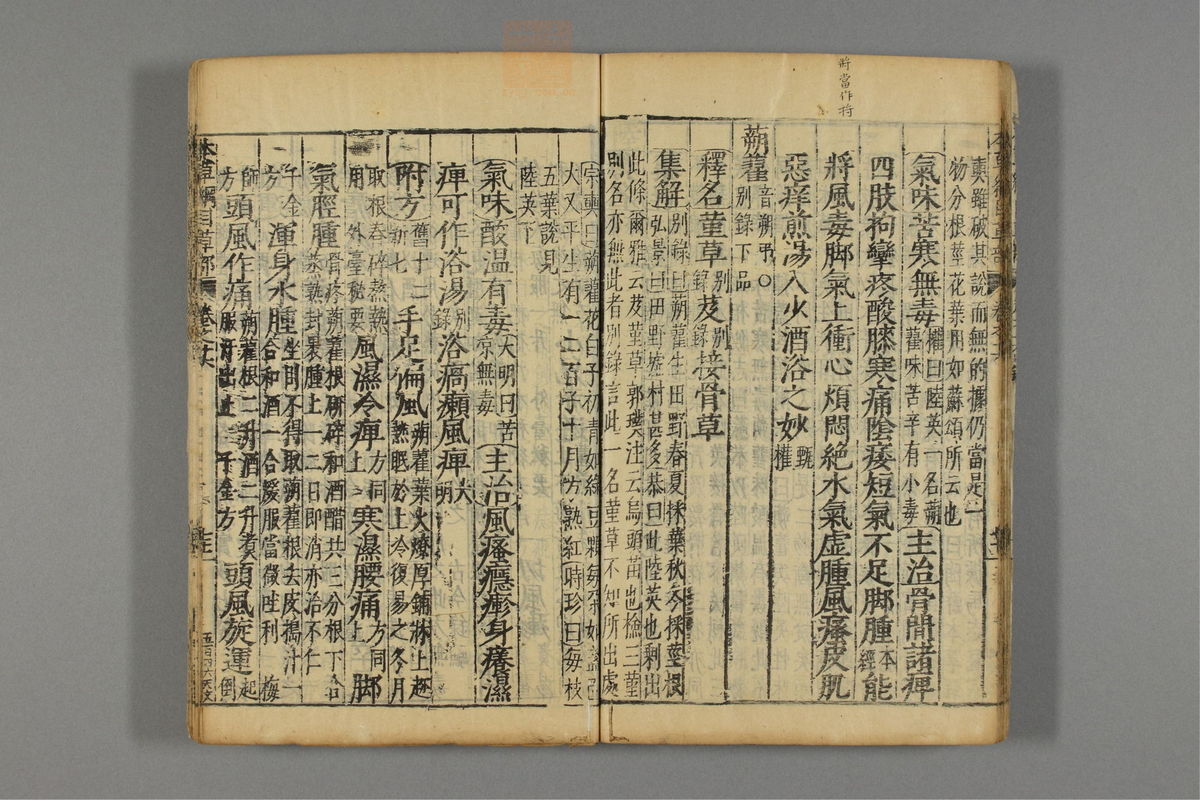 將當作捋
奭雖破其說而無的據仍當是一
物分根莖花葉用如蘇頌所云也
氣味苦寒無毒權曰陸英一名蒴藋味苦辛有小毒主治骨間諸痺
四肢拘攣疼酸膝寒痛陰痿短氣不足脚腫本經能
將風毒脚氣上衝心煩悶絕水氣虛腫風瘙皮肌
惡痒煎湯入少酒浴之妙甄權
蒴藋音朔弔○別錄下品
釋名堇草別錄芨別錄接骨草
集解別錄曰蒴藋生田野春夏採葉秋冬採莖根
弘景曰田野墟村甚多恭曰此陸英也剩出
此條爾雅云芨堇草郭璞注云烏頭苗也檢三堇
別名亦無此者別錄言此一名堇草不知所出處
宗奭曰蒴藋花白子初青如綠豆顆每朶如盞面
大又平生有一二百子十月方熟紅時珍曰每枝
五葉說見
陸英下
氣味酸温有毒大明曰苦凉無毒主治風瘙癮疹身癢濕
痺可作浴湯別錄浴瘑癩風痺大明
附方舊十二新七手足偏風蒴藋葉火燎厚鋪牀上趂熱眠於上冷復易之冬月
取根舂碎熬熱用外臺秘要風濕冷痺方同上寒濕腰痛方同上脚
氣脛腫骨疼蒴藋根研碎和酒醋共三分根下合蒸熟封裹腫上一二日即消亦治不仁
千金方渾身水腫坐卧不得取蒴藋根去皮搗汁一合和酒一合暖服當微吐利梅
師方頭風作痛蒴藋根二升酒二升煑服汗出止千金方頭風旋運起倒
本草綱目草部 卷之十六